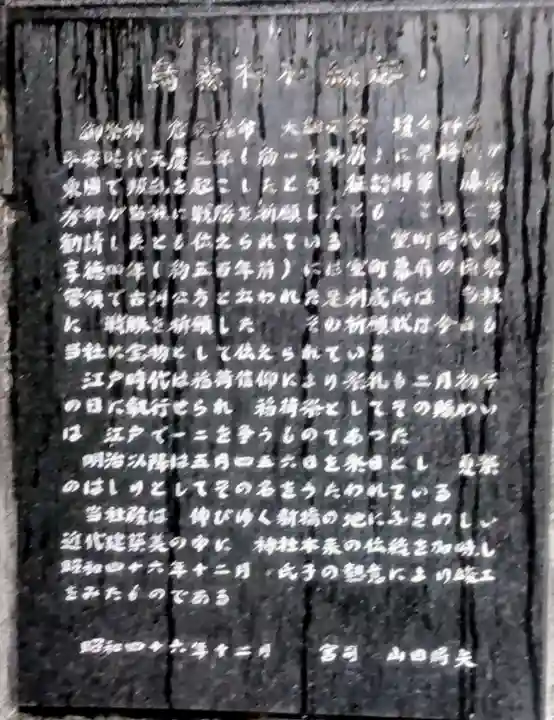 烏森神社縁起
御祭神 倉稲魂命 大鈿女命 瓊々杵尊
平安時代天慶三年(約一千年前)に平将門が
東国で叛乱を起こしたとき 征討将軍 藤原
秀郷が当社に戦勝を祈願したとも このとき
勧請したとも伝えられている 室町時代の
享徳四年(約五百年前)には室町幕府の関東
管領で古河公方と云われた足利成氏は 当社
に 戦勝を祈願した その祈願状は今日も
当社に宝物として伝えられている
江戸時代は稲荷信仰により祭礼も二月初午
の日に執行せられ 稲荷祭としてその賑わい
は 江戸で一二を争うものであった
明治以降は五月四五六日を祭日とし 夏祭
のはしりとしてその名をうたわれている
当社殿は 伸びゆく新橋の地にふさわしい
近代建築美の中に 神社本来の伝統を加味し
昭和四十六年十二月 氏子の熱意により竣工
をみたものである
昭和四十六年十二月 宮司 山田